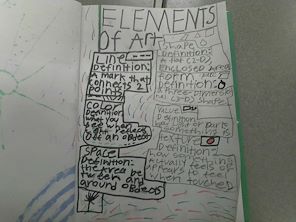 ELEMENTS
Of Art
LINE
Definition:
A mark that
connects 2
points
Color
Definition:
what you
see when
light reflects
off an object
Space
Definition:
the area be
tween and
around objects
Shape
Definition:
A flat (2-D)
Enclosed Area
form
Definition:
Three dimen
(3-D) shape
Value
Definition:
how light or dark
something is
Texture
Definition:
how something
actually feels or
appears to feel
when touched